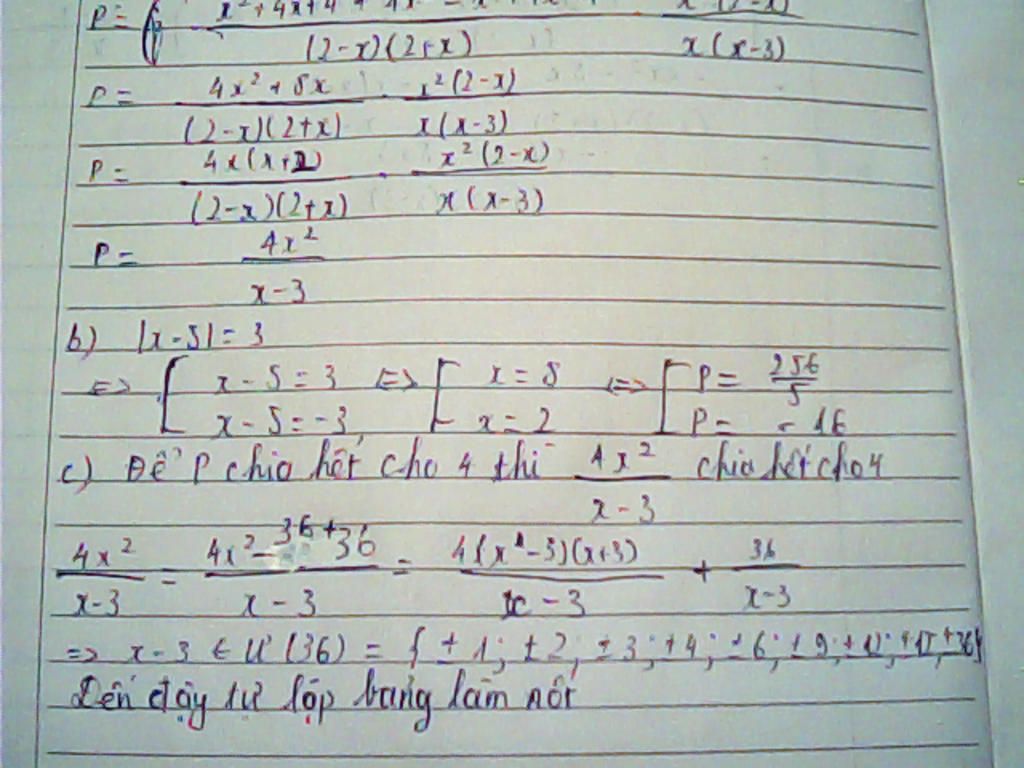 P =
(2-x)(2+x) x(x-3)
P = 4x² + 8x / (2-x)(2+x) . x²(2-x) / x(x-3)
P = 4x(x+2) / (2-x)(2+x) . x²(2-x) / x(x-3)
P = 4x² / x-3
b) |x-5| = 3
<=> [ x-5=3 <=> [ x=8 <=> [ P= 256/5
x-5=-3 x=2 P= -16
c) Để P chia hết cho 4 thì 4x² / x-3 chia hết cho 4
4x² / x-3 = 4x²-36+36 / x-3 = 4(x-3)(x+3) / x-3 + 36 / x-3
=> x-3 ∈ Ư(36) = { ±1; ±2; ±3; ±4; ±6; ±9; ±12;
Đến đây tự lập bảng làm nốt